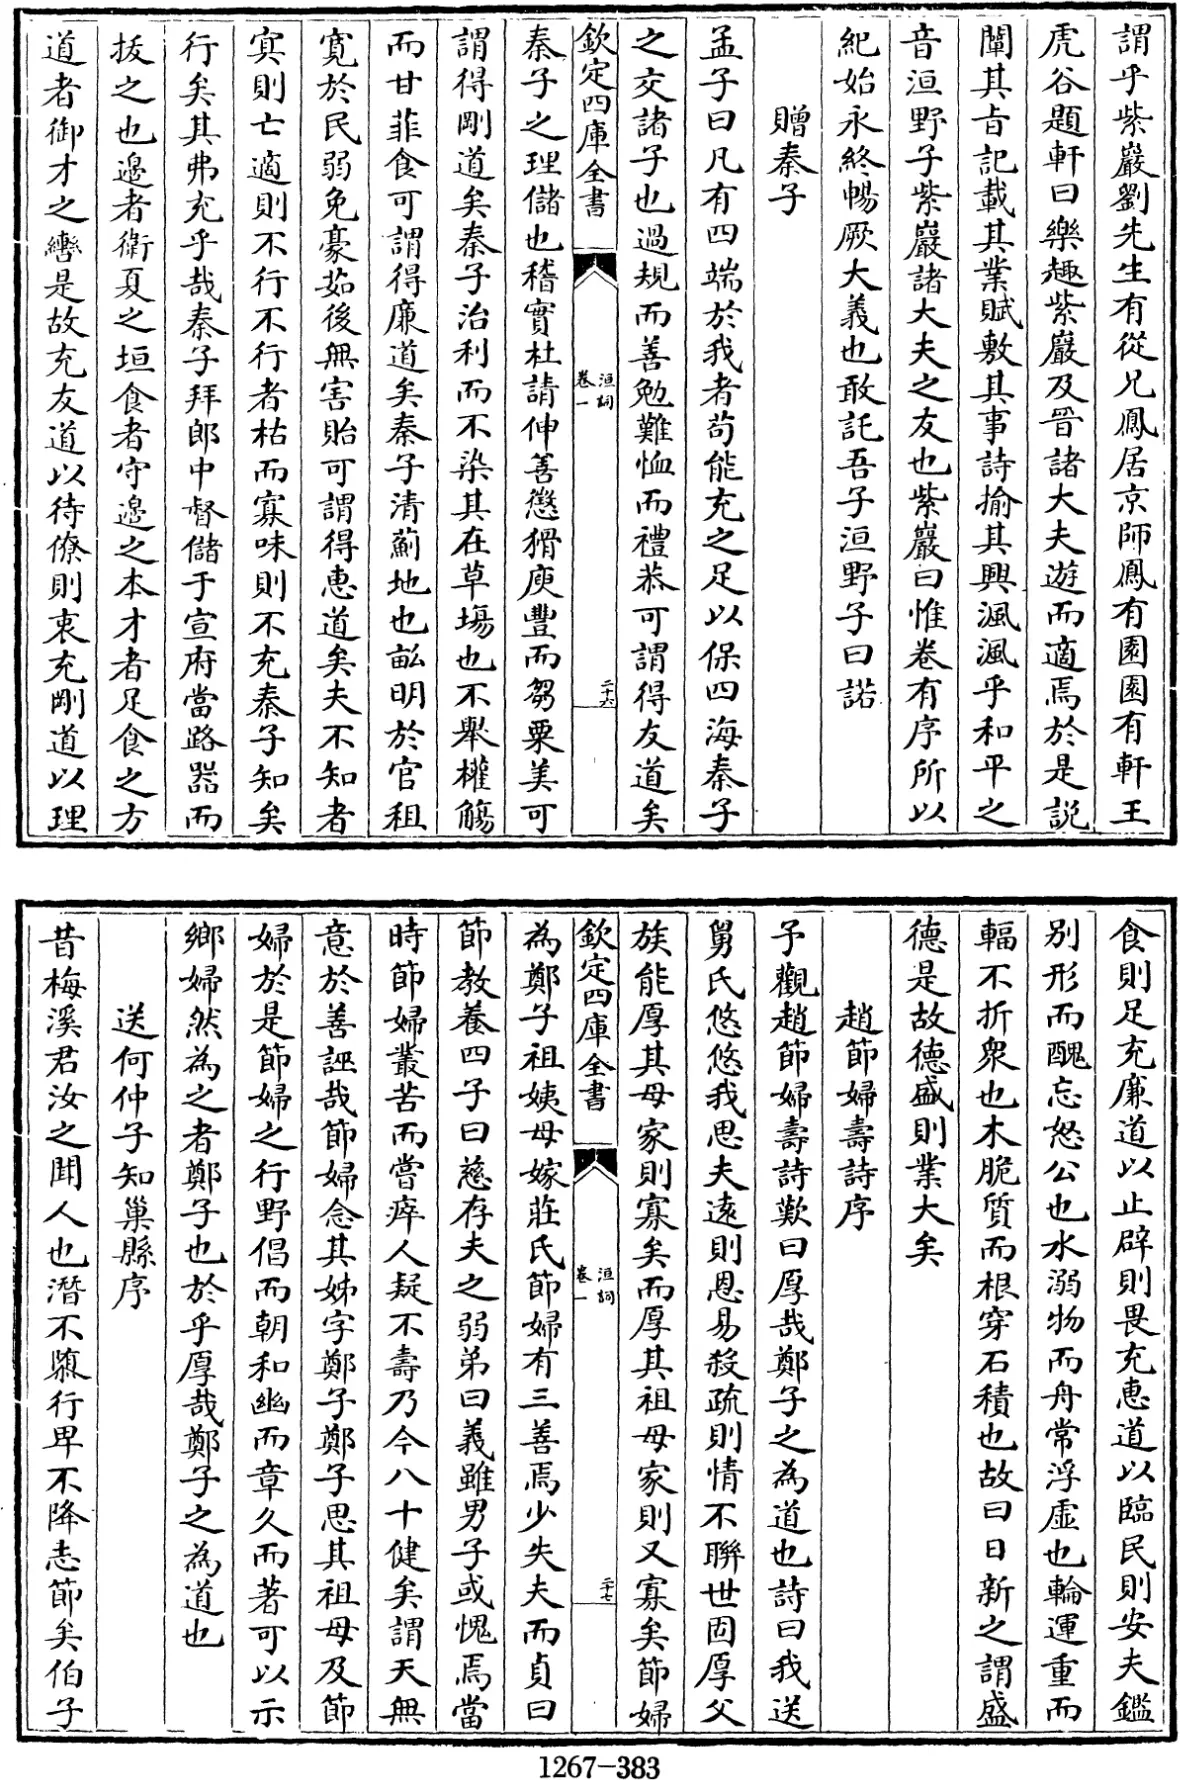 謂乎紫巖劉先生有從兄鳳居京師鳳有園園有軒王
虎谷題軒曰樂趣紫巖及晉諸大夫遊而適焉於是説
闡其㫖記載其業賦敷其事詩揄其興渢渢乎和平之
音洹野子紫巖諸大夫之友也紫巖曰惟卷有序所以
紀始永終暢厥大義也敢託吾子洹野子曰諾
贈秦子
孟子曰凡有四端於我者苟能充之足以保四海秦子
之交諸子也過規而善勉難恤而禮恭可謂得友道矣
欽定四庫全書
洹詞
卷一
二十六
秦子之理儲也稽實杜請伸善懲猾庾豐而芻粟美可
謂得剛道矣秦子治利而不染其在草塲也不舉權觴
而甘菲食可謂得廉道矣秦子清薊地也畝明於官租
寛於民弱免豪茹後無害貽可謂得惠道矣夫不知者
寘則亡適則不行不行者枯而寡味則不充秦子知矣
行矣其弗充乎哉秦子拜郎中督儲于宣府當路器而
拔之也邉者衛夏之垣食者守邉之本才者足食之方
道者御才之轡是故充友道以待僚則衷充剛道以理
食則足充廉道以止辟則畏充惠道以臨民則安夫鑑
别形而醜忘怒公也水溺物而舟常浮虛也輪運重而
輻不折衆也木脆質而根穿石積也故曰日新之謂盛
德是故德盛則業大矣
趙節婦壽詩序
予觀趙節婦壽詩歎曰厚哉鄭子之為道也詩曰我送
舅氏悠悠我思夫逺則恩易殺疏則情不聯世固厚父
族能厚其母家則寡矣而厚其祖母家則又寡矣節婦
欽定四庫全書
洹詞
卷一
二十七
為鄭子祖姨母嫁莊氏節婦有三善焉少失夫而貞曰
節教養四子曰慈存夫之弱弟曰義雖男子或愧焉當
時節婦叢苦而嘗瘁人疑不壽乃今八十健矣謂天無
意於善誣哉節婦念其姊字鄭子鄭子思其祖母及節
婦於是節婦之行野倡而朝和幽而章久而著可以示
鄉婦然為之者鄭子也於乎厚哉鄭子之為道也
送何仲子知巢縣序
昔梅溪君汝之聞人也潛不隳行卑不降志節矣伯子
1267-383